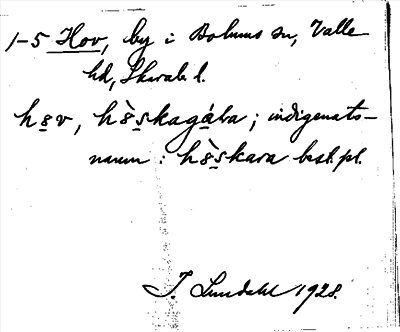 1-5 Hov, by i Bolums sn, Valle
hd, Skarab. l.
hov, hòskagáɫra; indigenats-
namn: hòskara best. pl.
I. Lundahl 1928.